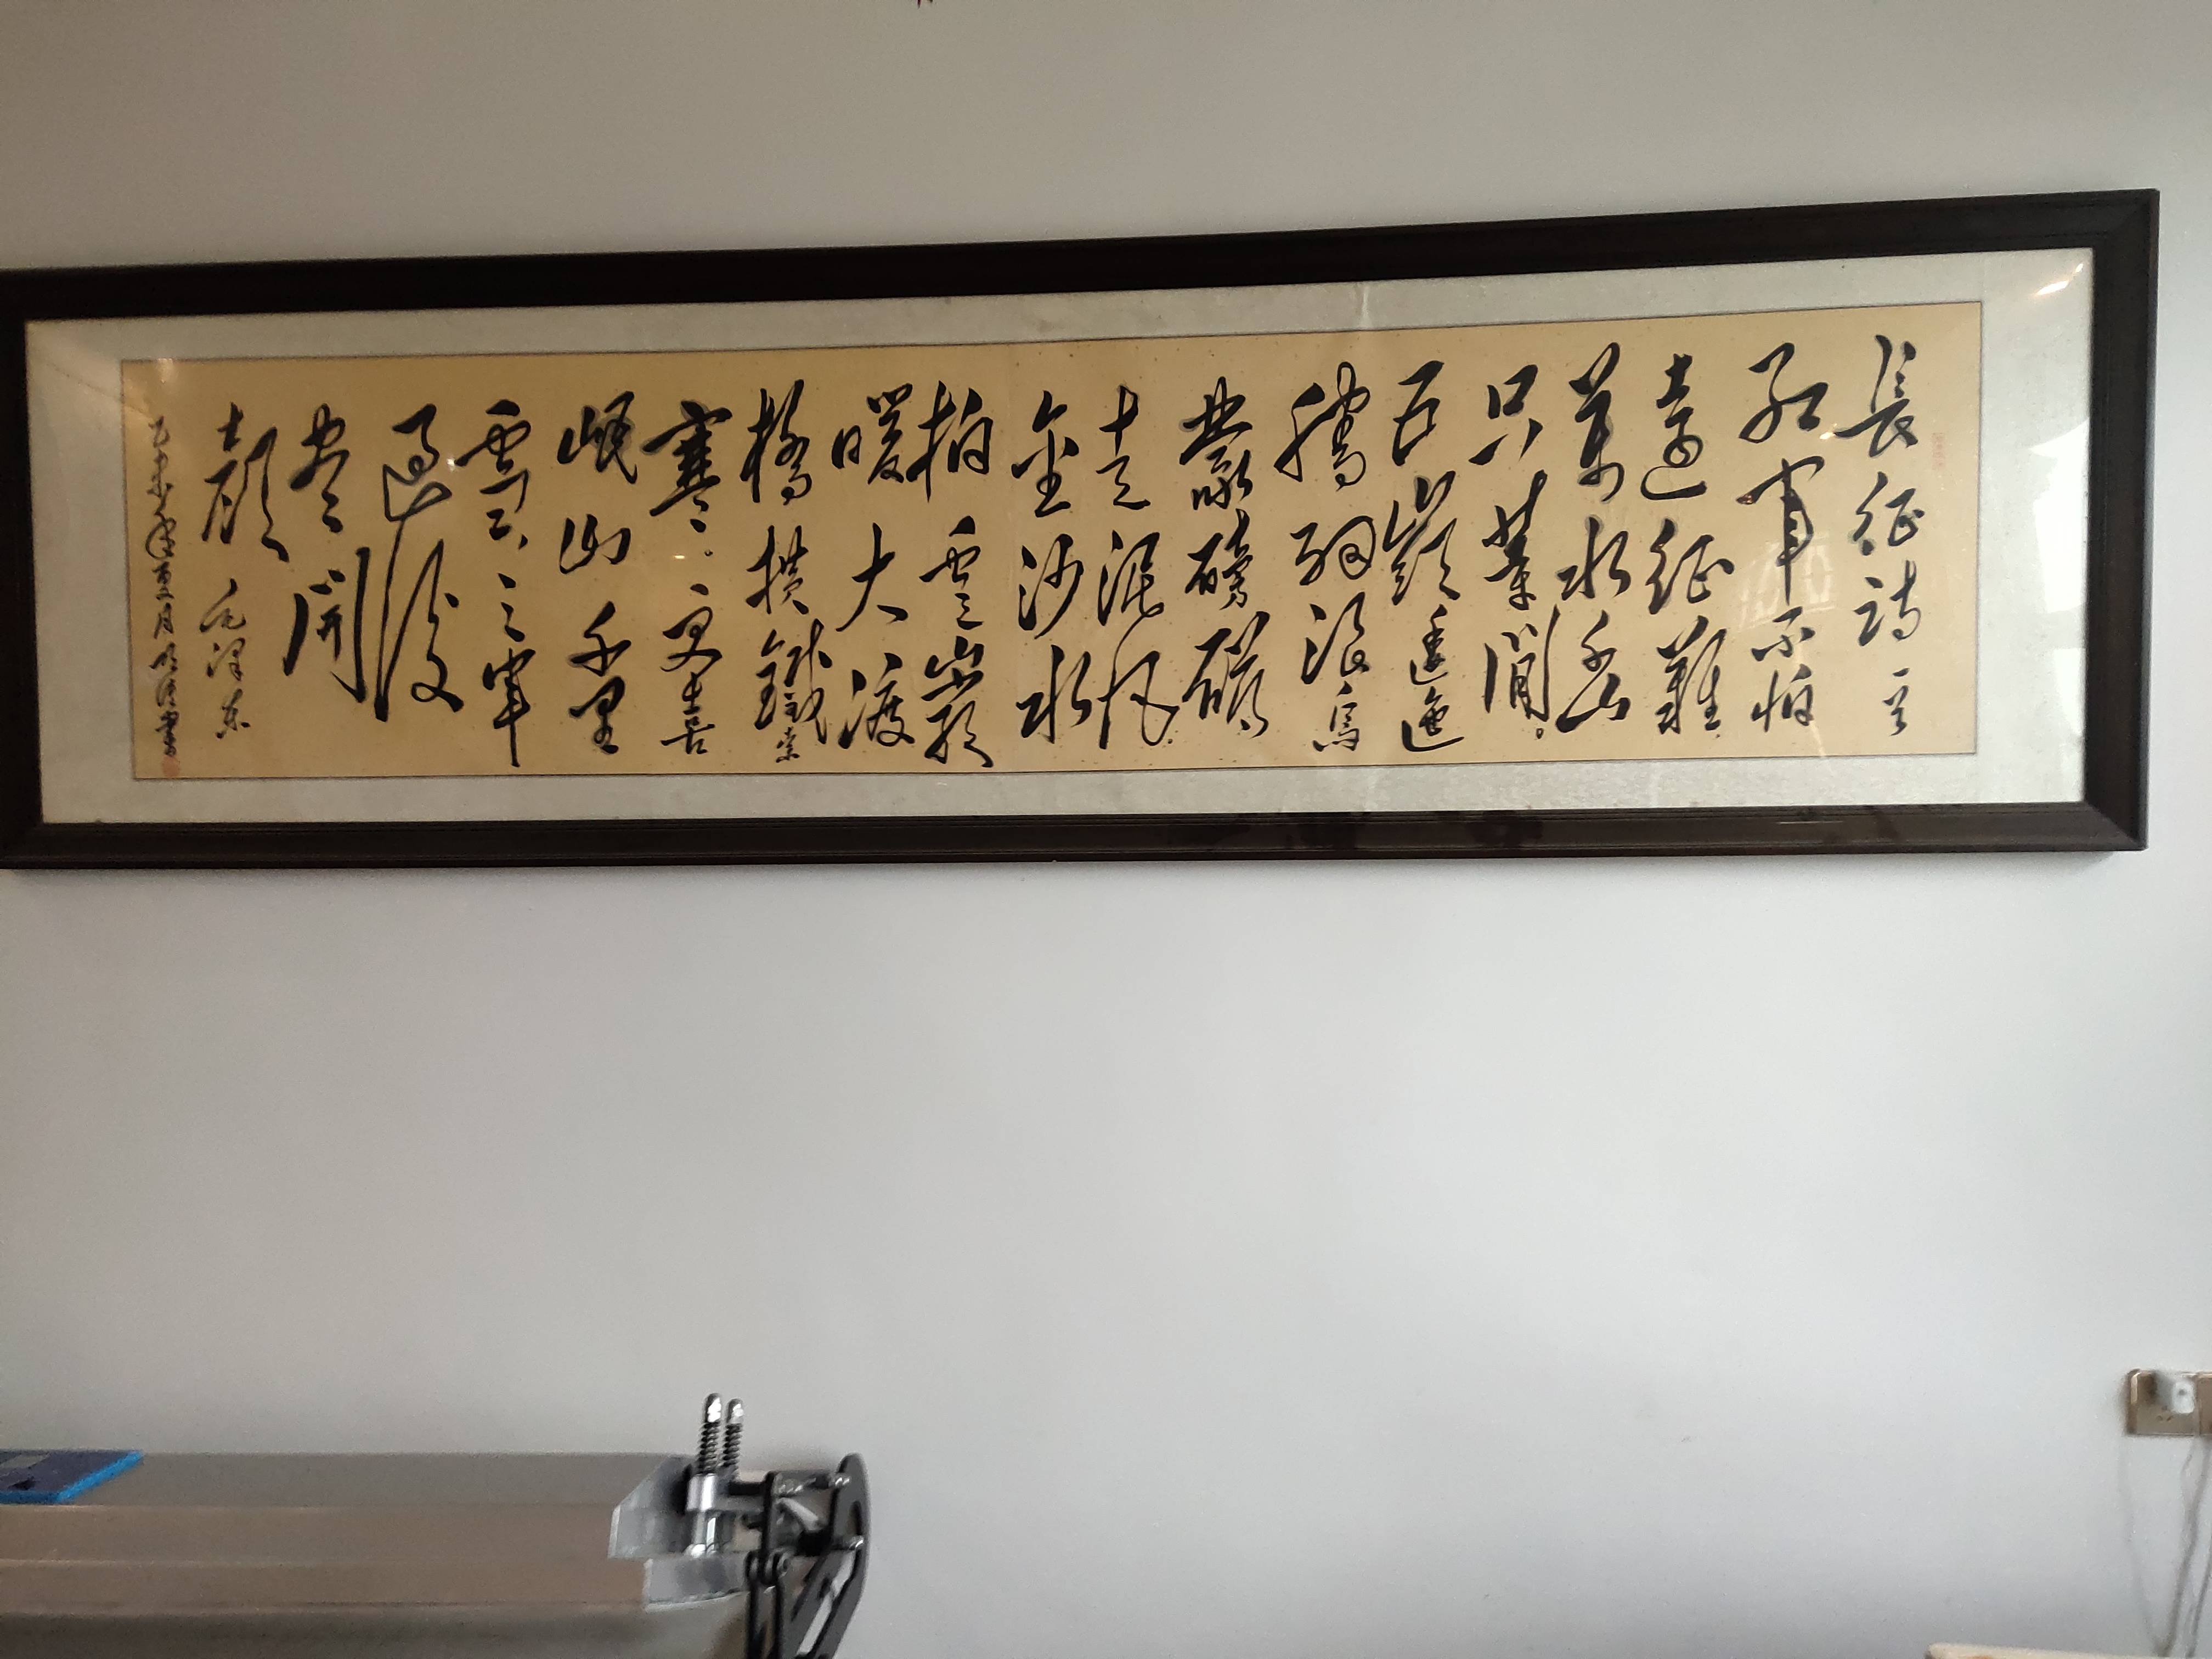 長征詩一首
紅軍不怕
遠征難
萬水千山
只等閒
五嶺逶迤
騰細浪烏
蒙磅礴
走泥丸
金沙水
拍雲崖
暖大渡
橋橫鐵索
寒更喜
岷山千里
雪三軍
過後
盡開
顏 毛澤東
乙未年夏月書